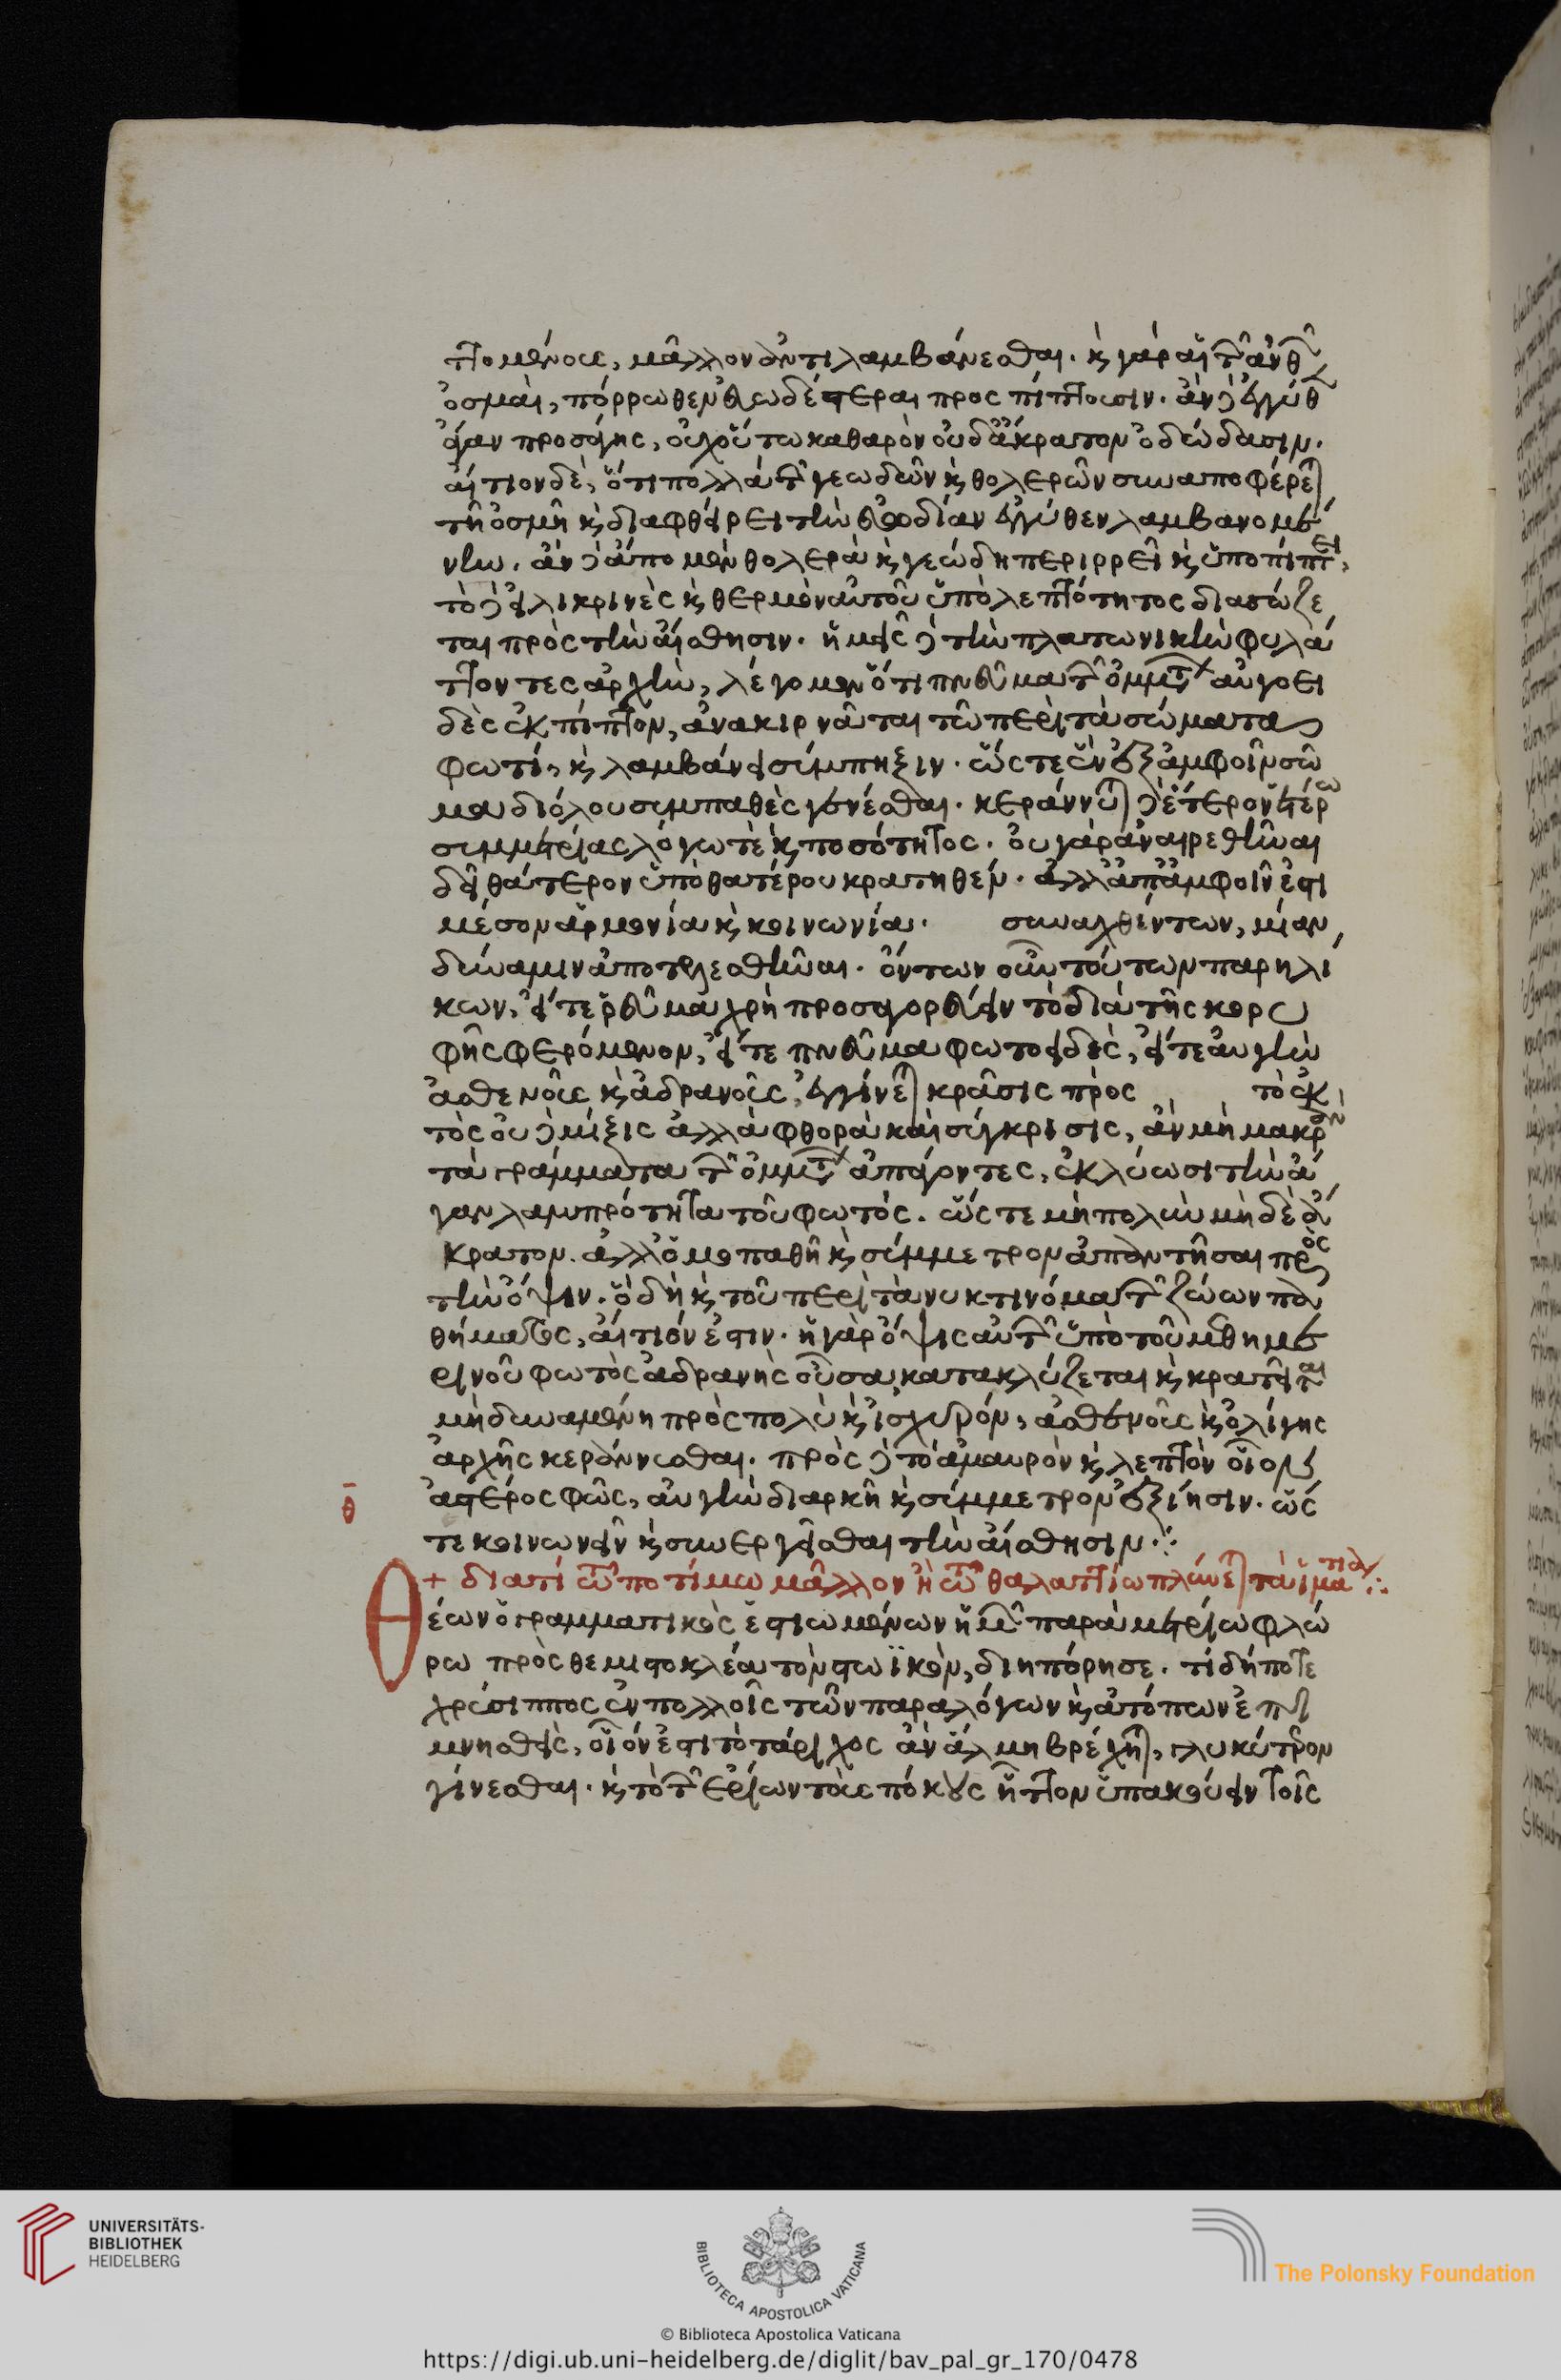 πτομένους, μᾶλλον ἀντιλαμβάνεσθαι. καὶ γὰρ αἱ τῶν ἀνθῶν
ὀσμαὶ, πόρρωθεν εὐωδέστεραι προσπίπτουσιν. ἂν δ' ἐγγύθεν
ἄγαν προσάγῃς, οὐχ οὕτω καθαρὸν οὐδ' ἄκρατον ὀδώδασιν.
αἴτιον δὲ, ὅτι πολλὰ τῶν γεωδῶν καὶ θολερῶν συναποφέρεται
τῇ ὀσμῇ καὶ διαφθείρει τὴν εὐωδίαν ἐγγύθεν λαμβανομέ
νην. ἂν δ' ἄποθεν θολερὰ καὶ γεώδη περιρρεῖ καὶ ὑποπίπτει,
τὸ δ' εἰλικρινὲς καὶ θερμὸν αὐτοῦ ὑπὸ λεπτότητος διασώζε
ται πρὸς τὴν αἴσθησιν. ἡμεῖς δὲ τὴν πλατωνικὴν φυλά
ττοντες ἀρχὴν, λέγομεν ὅτι πνεῦμα τῶν ὀμμάτων αὐγοει
δὲς ἐκπίπτον, ἀνακιρνᾶται τῷ περὶ τὰ σώματα
φωτὶ, καὶ λαμβάνει σύμπηξιν. ὥστε ἓν ἐξ ἀμφοῖν σῶ
μα διόλου συμπαθὲς γενέσθαι. κεράννυται δ' ἕτερον ἑτέρω
συμμετρίας λόγω τὲ καὶ ποσότητος. οὐ γὰρ ἀναιρεθῆναι
δεῖ θάτερον ὑπὸ θατέρου κρατηθέν. ἀλλ' ἀπ' ἀμφοῖν ἐστι
μέσον ἁρμονία καὶ κοινωνία. συναχθέντων, μίαν
δύναμιν ἀποτελεσθῆναι. ὄντων οὖν τούτων παρηλί
κων, εἴτε ῥεῦμα χρὴ προσαγορεύειν τὸ διὰ τῆς κόρ
φῆς φερόμενον, εἴτε πνεῦμα φωτοειδὲς, εἴτε αὐγὴν
ἀσθενοῦς καὶ ἀδρανοῦς, ἐγγίνεται κρᾶσις πρὸς τὸ ἐκ
τὸς οὐ δὲ μίξις ἀλλὰ φθορὰ καὶ σύγκρισις, ἂν μὴ μακρὰν
τὰ γράμματα τῶν ὀμμάτων ἀπάγοντες, ἐκλύωσι τὴν ἄ
γαν λαμπρότητα τοῦ φωτός. ὥστε μὴ πολὺν μηδὲ ἄ
κρατον. ἀλλ' ὁμοπαθῆ καὶ σύμμετρον ἀπαντῆσαι πρὸς
τὴν ὄψιν. ὃ δὴ καὶ τοῦ περὶ τὰ νυκτινόμα τῶν ζώων πα
θήματος, αἴτιόν ἐστιν. ἡ γὰρ ὄψις αὐτῶν ὑπὸ τοῦ μεθημε
ρινοῦ φωτὸς ἀδρανὴς οὖσα, κατακλύζεται καὶ κρατεῖται
μὴ δυναμένη πρὸς πολὺ καὶ ἰσχυρόν, ἀσθενοῦς καὶ ὀλίγης
ἀρχῆς κεράννυσθαι. πρὸς δὲ τὸ ἀμαυρὸν καὶ λεπτὸν οἷον
ἀστέρος φῶς, αὐγὴν διαρκῆ καὶ σύμμετρον ἐξίησιν. ὥς
τε κοινωνεῖν καὶ συνεργεῖσθαι τὴν αἴσθησιν:
θ
+ διατί τῷ ποτίμω μᾶλλον ἢ τῷ θαλαττίω πλύνεται τὰ ἱμάτια:
Θέων ὁ γραμματικὸς ἑστιωμένων ἡμῶν παρὰ μεστρίω φλώ
ρω πρὸς θεμιστοκλέα τὸν στωϊκὸν, διηπόρησε. τί δήποτε
χρύσιππος ἐν πολλοῖς τῶν παραλόγων καὶ ἀτόπων ἐπι
μνησθεὶς, οἷόν ἐστι τὸ τάριχος ἂν ἅλμη βρέχηται, γλυκύτερον
γίνεσθαι. καὶ τὸ τῶν ἐρίων τοὺς πόκους ἧττον ὑπακούειν τοῖς
UNIVERSITÄTS-
BIBLIOTHEK
HEIDELBERG
BIBLIOTECA APOSTOLICA VATICANA
The Polonsky Foundation
© Biblioteca Apostolica Vaticana
https://digi.ub.uni-heidelberg.de/diglit/bav_pal_gr_170/0478